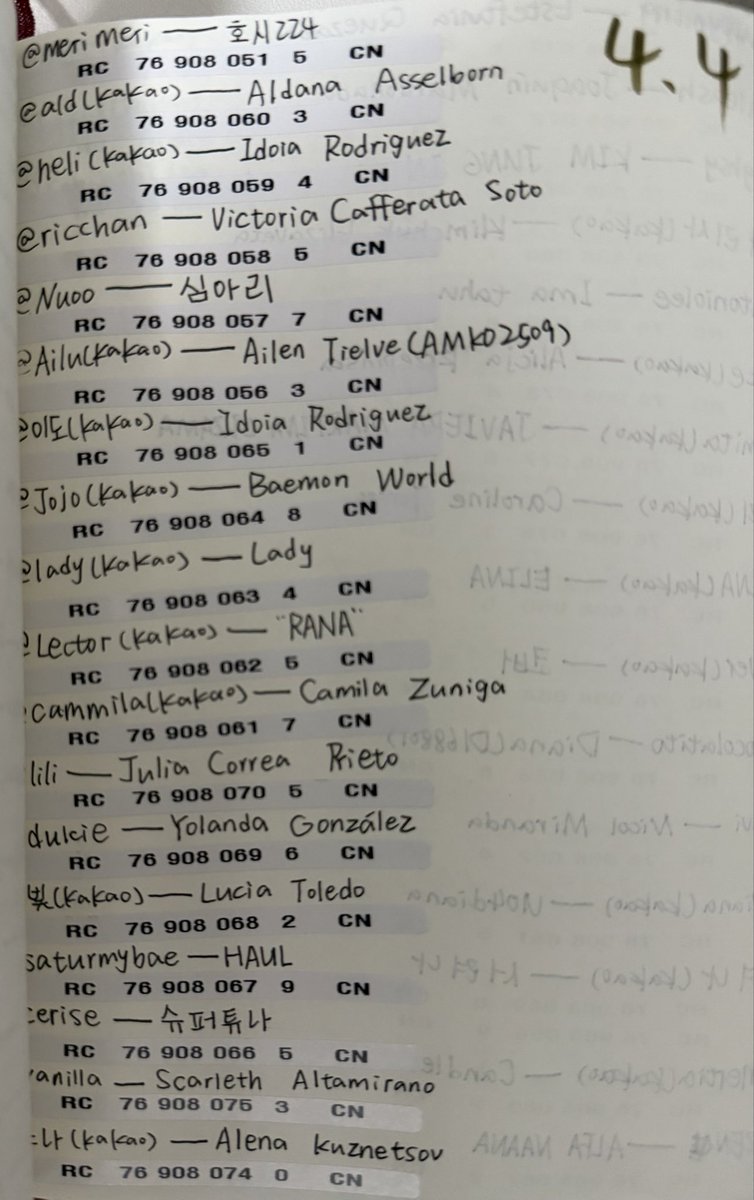 4.4
@meri meri — 호시224
RC 76 908 051 5 CN
@ald(kakao) — Aldana Asselborn
RC 76 908 060 3 CN
@heli(kakao) — Idoia Rodriguez
RC 76 908 059 4 CN
@ricchan — Victoria Cafferata Soto
RC 76 908 058 5 CN
@Nuoo — 심아리
RC 76 908 057 7 CN
@Ailu(kakao) — Ailen Tielve(AMKO2509)
RC 76 908 056 3 CN
@이도(kakao) — Idoia Rodriguez
RC 76 908 065 1 CN
@Jojo(kakao) — Baemon World
RC 76 908 064 8 CN
@lady(kakao) — Lady
RC 76 908 063 4 CN
@Lector(kakao) — "RANA"
RC 76 908 062 5 CN
cammila(kakao) — Camila Zuniga
RC 76 908 061 7 CN
lili — Julia Correa Prieto
RC 76 908 070 5 CN
dulcie — Yolanda González
RC 76 908 069 6 CN
빛(kakao) — Lucia Toledo
RC 76 908 068 2 CN
saturmybae — HAUL
RC 76 908 067 9 CN
cerise — 슈퍼튜나
RC 76 908 066 5 CN
vanilla — Scarleth Altamirano
RC 76 908 075 3 CN
나(kakao) — Alena Kuznetsov
RC 76 908 074 0 CN